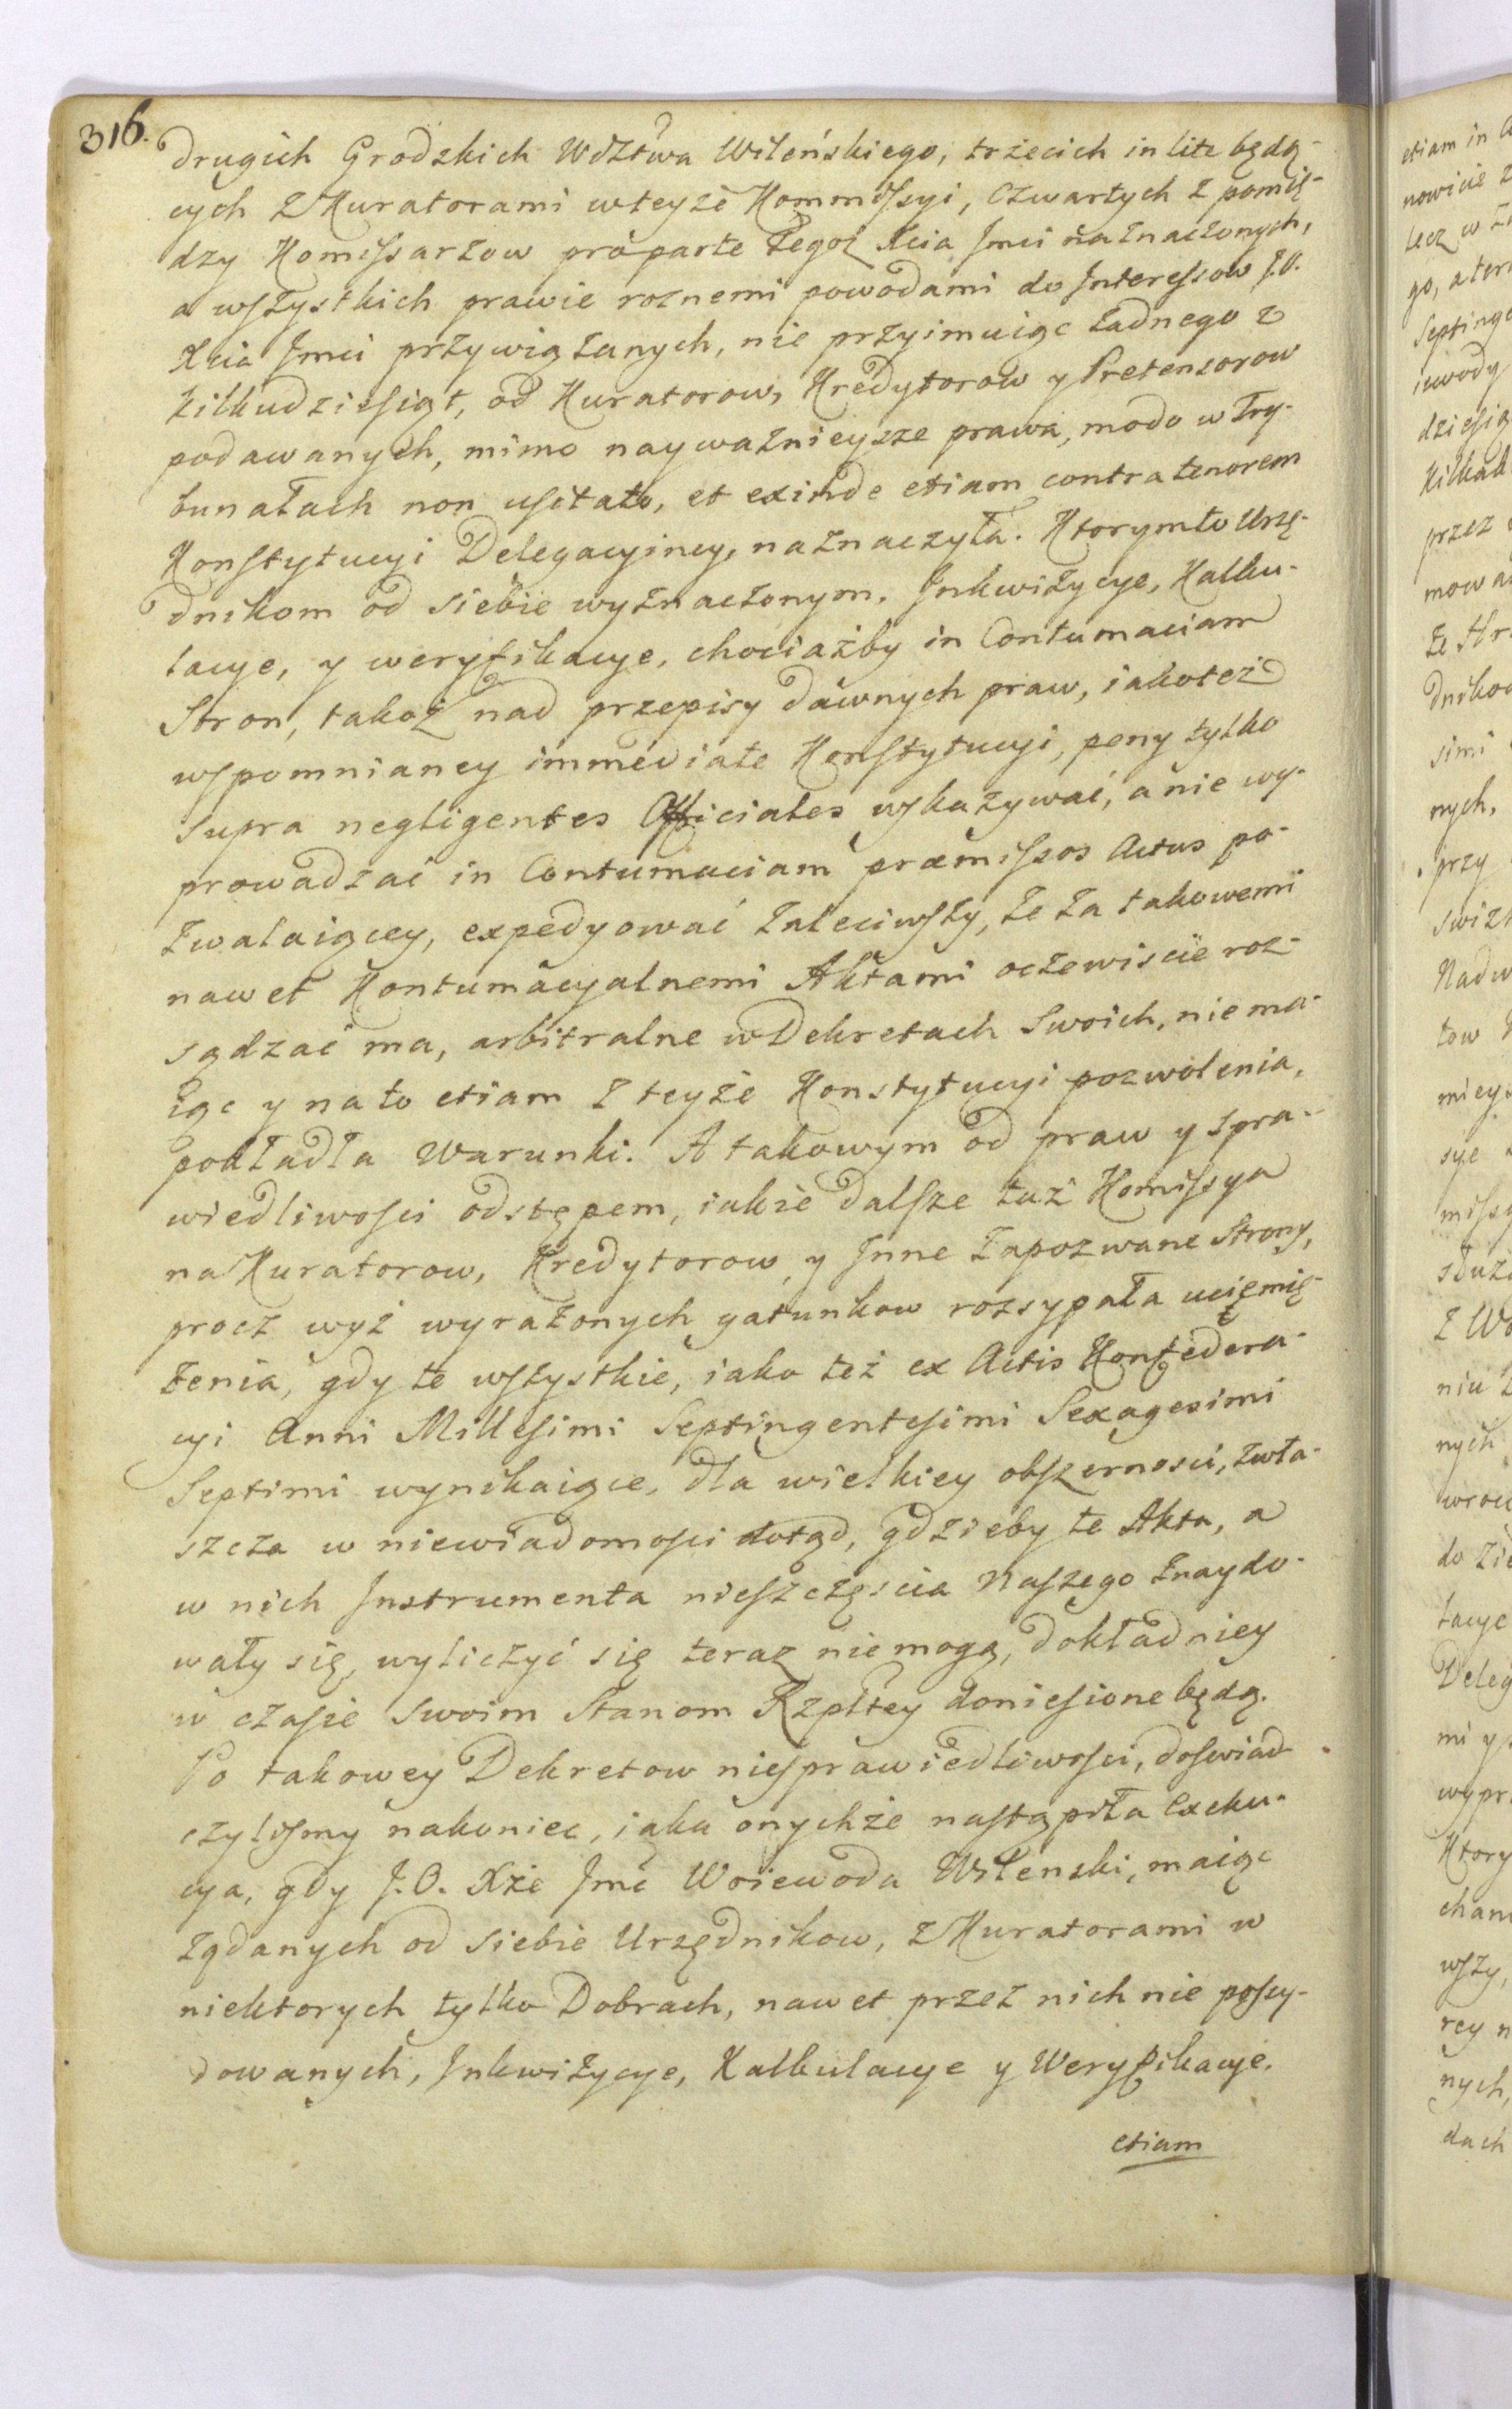 316.
drugich Grodzkich Wdztwa Wileńskiego, trzecich in lite będą-
cych z Kuratorami wteyże Kommissyi, czwartych z pomię-
dzy Komissarzow pro parte tegoż Xcia Jmci naznaczonych,
a wszystkich prawie roznemi powodami do Interessow J.O.
Xcia Jmci przywiązanych, nie przyimuiąc żadnego z
kilkudziesiąt, od Kuratorow, Kredytorow y Pretensorow
podawanych, mimo nayważnieysze prawa, modo w Try-
bunałach non usitato, et exinde etiam contra tenorem
Konstytucyi Delegacyiney, naznaczyła. Ktorymto Urzę-
dnikom od siebie wyznaczonym. Inkwizycye, Kalku-
lacye, y weryfikacye, chociażby in Contumaciam
Stron, takoż nad przepisy dawnych praw, iakoteż
wspomnianey immediate Konstytucyi, peny tylko
supra negligentes Officiales wskazywać, a nie wy-
prowadzać in Contumaciam præmissos Actus po-
zwalaiącey, expedyować zaleciwszy, że za takowemi
nawet Kontumacyalnemi Aktami oczewiscie roz-
sądzać ma, arbitralne w Dekretach Swoich, nie ma-
iąc y na to etiam z teyże Konstytucyi pozwolenia,
pokładła Warunki. A takowym od praw y spra-
wiedliwosci odstępem, iakie dalsze taż Komissya
na Kuratorow, Kredytorow, y Inne Zapozwane Strony,
procz wyż wyrażonych gatunkow rozsypała uciemię-
żenia, gdy te wszystkie, iako też ex Actis Konfedera-
cyi Anni Millesimi Septingentesimi Sexagesimi
Septimi wynikaiące, dla wielkiey obszernosci, zwła-
szcza w niewiadomosci dotąd, gdzieby te Akta, a
w nich Instrumenta nieszczęscia Naszego znaydo-
wały się, wyliczyć się teraz nie mogą, dokładniey
w czasie Swoim Stanom Rzpltey doniesione będą.
Po takowey Dekretow niesprawiedliwosci, doswiad-
czylismy nakoniec, iaka onychże nastąpiła Exeku-
cya, gdy J.O. Xże Jmć Woiewoda Wilenski, maiąc
żądanych od siebie Urzędnikow, z Kuratorami w
niektorych tylko Dobrach, nawet przez nich nie possy-
dowanych, Inkwizycye, Kalkulacye y Weryfikacye.
etiam